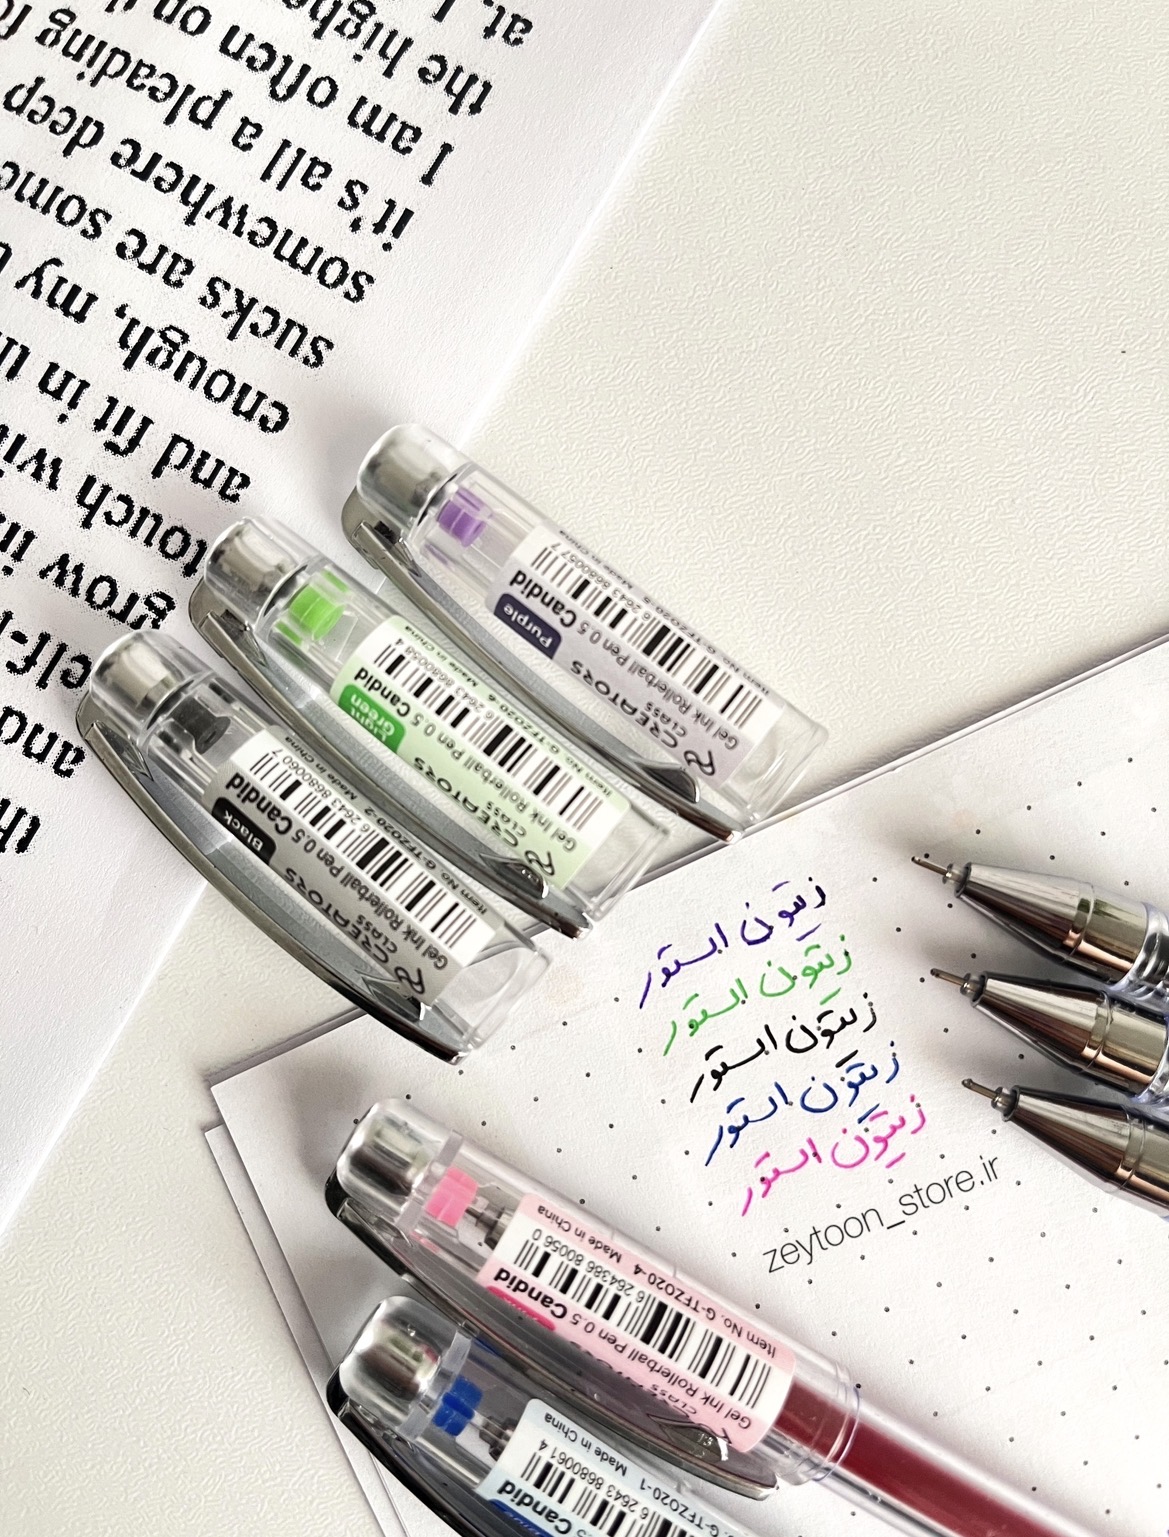 at. I
the highe
I am often on th
it's all a pleading fo
somewhere deep
sucks are some
enough, my
and fit in th
touch wi
grow in
elf-
and
th
Purple
CREATORS
CLASS
Gel Ink Rollerball Pen 0.5 Candid
Item No. G-TFZ020-5 Made in China
Light Green
CREATORS
CLASS
Gel Ink Rollerball Pen 0.5 Candid
Item No. G-TFZ020-6 Made in China
Black
CREATORS
CLASS
Gel Ink Rollerball Pen 0.5 Candid
6 2643 8680060 7
Item No. G-TFZ020-2 Made in China
زیتون استور
زیتون استور
زیتون استور
زیتون استور
زیتون استور
zeytoon_store.ir
CLASS
Gel Ink Rollerball Pen 0.5 Candid
6 264386 80056 0
Item No. G-TFZ020-4 Made in China
Candid
6 2643 8680061 4
G-TFZ020-1 Made in China